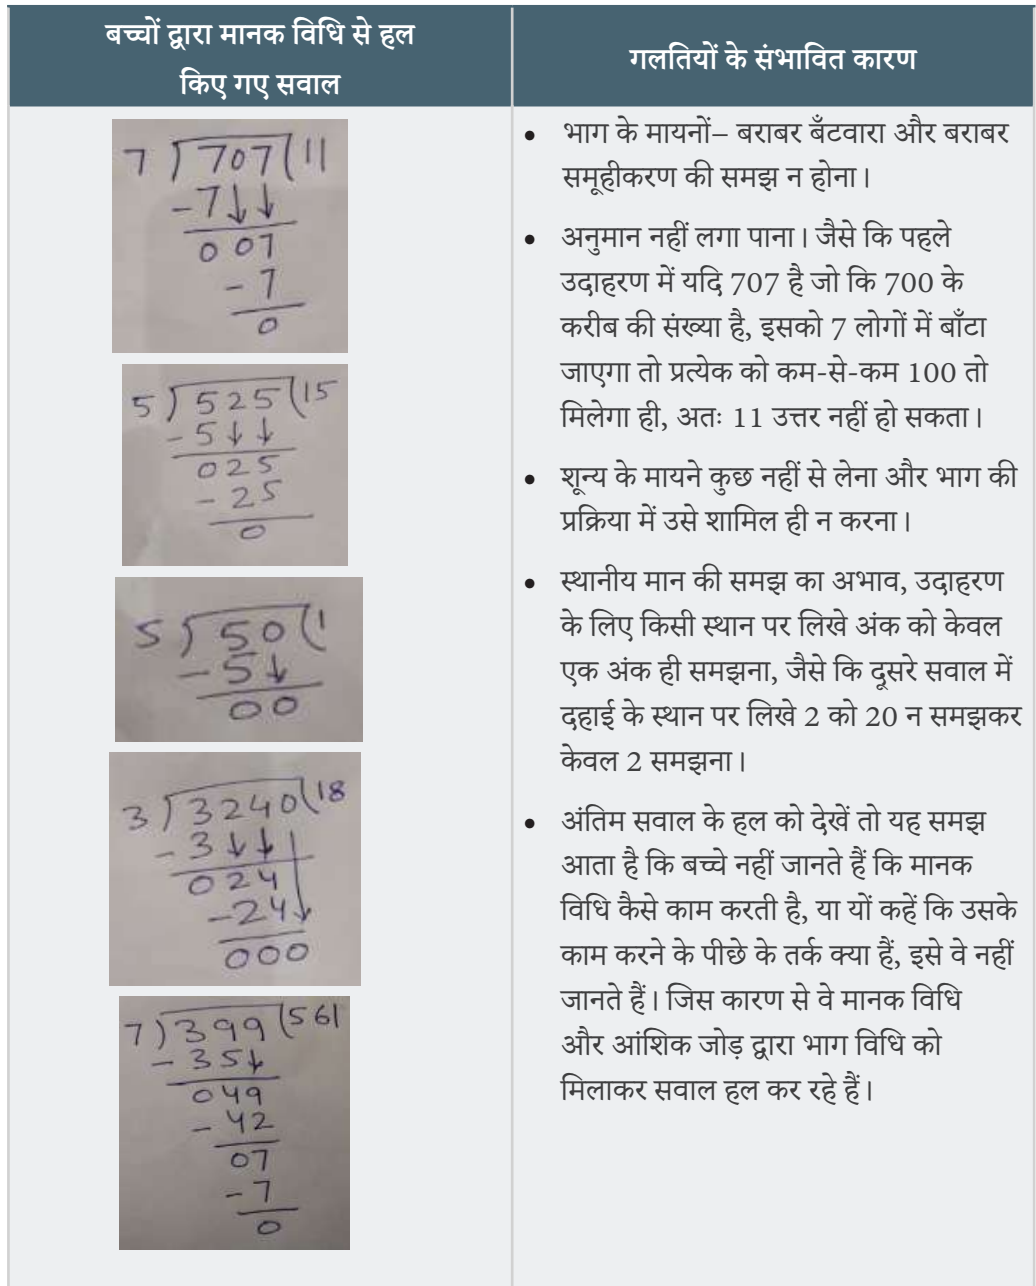 बच्चों द्वारा मानक विधि से हल
किए गए सवाल
7 ) 707 ( 11
- 7 ↓ ↓
0 07
- 7
0
5 ) 525 ( 15
- 5 ↓ ↓
025
- 25
0
5 ) 50 ( 1
- 5 ↓
00
3 ) 3240 ( 18
- 3 ↓ ↓
024
- 24 ↓
000
7 ) 399 ( 561
- 35 ↓
049
- 42
07
- 7
0
गलतियों के संभावित कारण
• भाग के मायनों– बराबर बँटवारा और बराबर
समूहीकरण की समझ न होना।
• अनुमान नहीं लगा पाना। जैसे कि पहले
उदाहरण में यदि 707 है जो कि 700 के
करीब की संख्या है, इसको 7 लोगों में बाँटा
जाएगा तो प्रत्येक को कम-से-कम 100 तो
मिलेगा ही, अतः 11 उत्तर नहीं हो सकता।
• शून्य के मायने कुछ नहीं से लेना और भाग की
प्रक्रिया में उसे शामिल ही न करना।
• स्थानीय मान की समझ का अभाव, उदाहरण
के लिए किसी स्थान पर लिखे अंक को केवल
एक अंक ही समझना, जैसे कि दूसरे सवाल में
दहाई के स्थान पर लिखे 2 को 20 न समझकर
केवल 2 समझना।
• अंतिम सवाल के हल को देखें तो यह समझ
आता है कि बच्चे नहीं जानते हैं कि मानक
विधि कैसे काम करती है, या यों कहें कि उसके
काम करने के पीछे के तर्क क्या हैं, इसे वे नहीं
जानते हैं। जिस कारण से वे मानक विधि
और आंशिक जोड़ द्वारा भाग विधि को
मिलाकर सवाल हल कर रहे हैं।